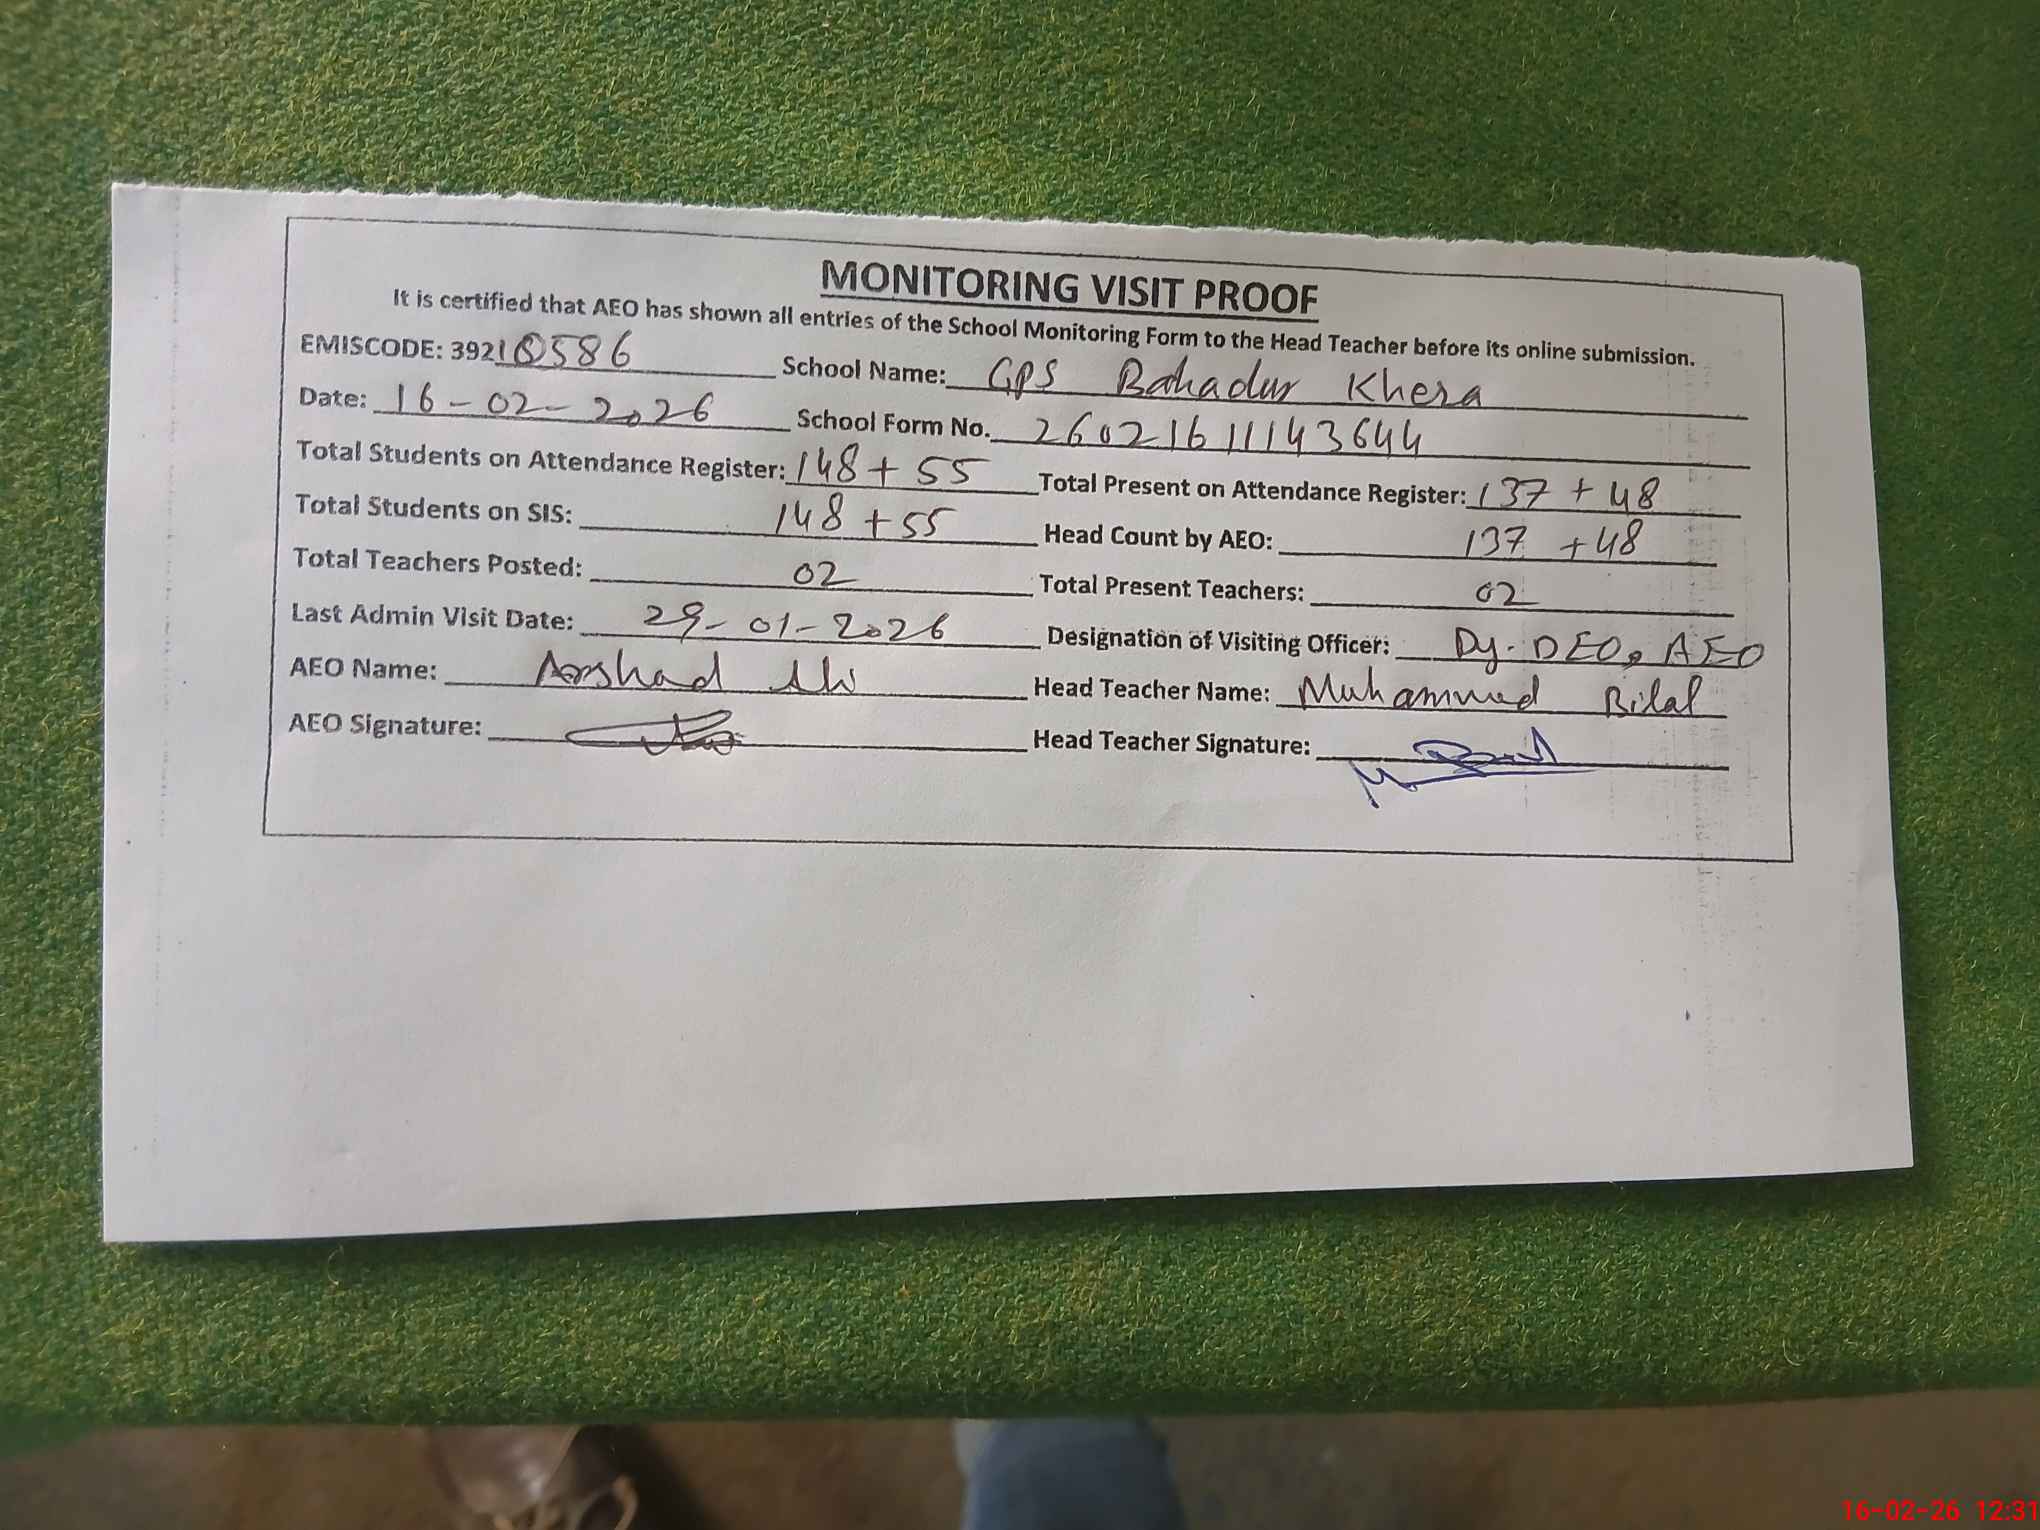 MONITORING VISIT PROOF
It is certified that AEO has shown all entries of the School Monitoring Form to the Head Teacher before its online submission.
EMISCODE: 392 School Name: GPS Bahadur Khera
Date: 16-02-2026 School Form No. 26021611143644
Total Students on Attendance Register: 148 + 55 Total Present on Attendance Register: 137 + 48
Total Students on SIS: 148 + 55 Head Count by AEO: 137 + 48
Total Teachers Posted: 02 Total Present Teachers: 02
Last Admin Visit Date: 29-01-2026 Designation of Visiting Officer: Dy. DEO, AEO
AEO Name: Arshad Ali Head Teacher Name: Muhammad Bilal
AEO Signature: Head Teacher Signature:
16-02-26 12:31